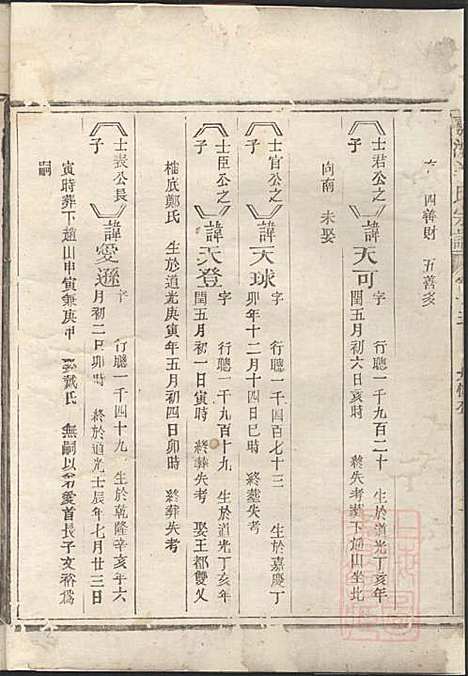 四善財 五善亥
士君公之子 諱天可 字 行聽一千九百二十 生於道光丁亥年
閏五月初六日亥時 終失考 葬下通山坐北
向南 未娶
士官公之子 諱天球 字 行聽一千四百七十三 生於嘉慶丁
卯年十二月十四日巳時 終墓失考
士臣公之子 諱天登 字 行聽一千九百十九 生於道光丁亥年
閏五月初一日寅時 終葬失考 娶王都雙乂
樁底鄭氏 生於道光庚寅年五月初四日卯時 終葬失考
士表公長子 諱愛遜 字 行聽一千四十九 生於乾隆辛亥年六
月初二日卯時 終於道光壬辰年七月廿三日
寅時葬下通山申寅兼庚甲 戴氏 無嗣以弟愛首長子文裕為
嗣